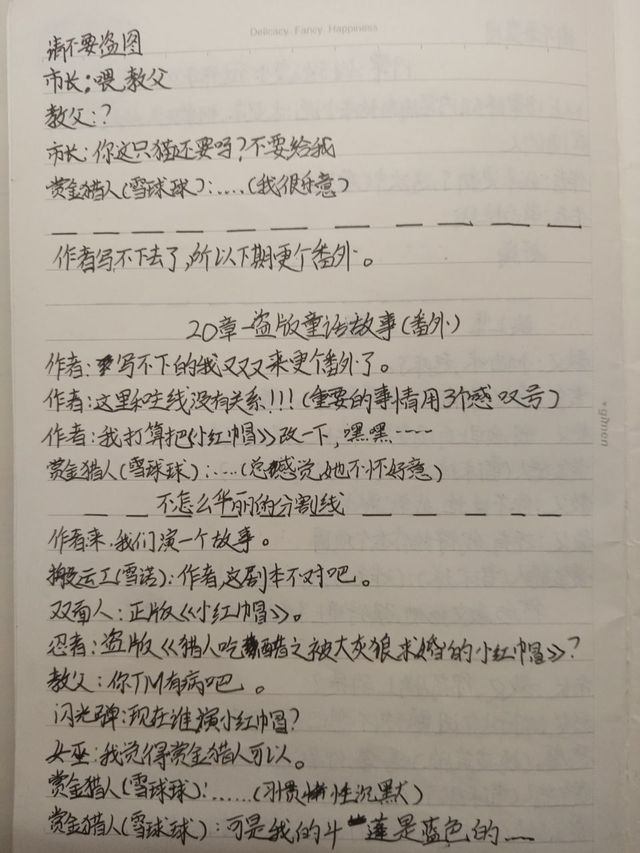 Delicacy. Fancy. Happiness
请不要盗图
市长:喂,教父
教父:?
市长:你这只猫还要吗?不要给我
赏金猎人(雪球球):....(我很乐意)
作者写不下去了,所以下期更个番外。
20章-盗版童话故事(番外)
作者:写不下的我又又又来更个番外了。
作者:这里和主线没有关系!!!(重要的事情用3个感叹号)
作者:我打算把《小红帽》改一下,嘿嘿----
赏金猎人(雪球球):....(总感觉她不怀好意)
不怎么华丽的分割线
作者:来,我们演一个故事。
搬运工(雪诺):作者,这剧本不对吧。
双面人:正版《小红帽》。
忍者:盗版《猎人吃醋之被大灰狼求婚的小红帽》?
教父:你TM有病吧。
闪光弹:现在谁演小红帽?
女巫:我觉得赏金猎人可以。
赏金猎人(雪球球):......(习惯性沉默)
赏金猎人(雪球球):可是我的斗蓬是蓝色的
gimen